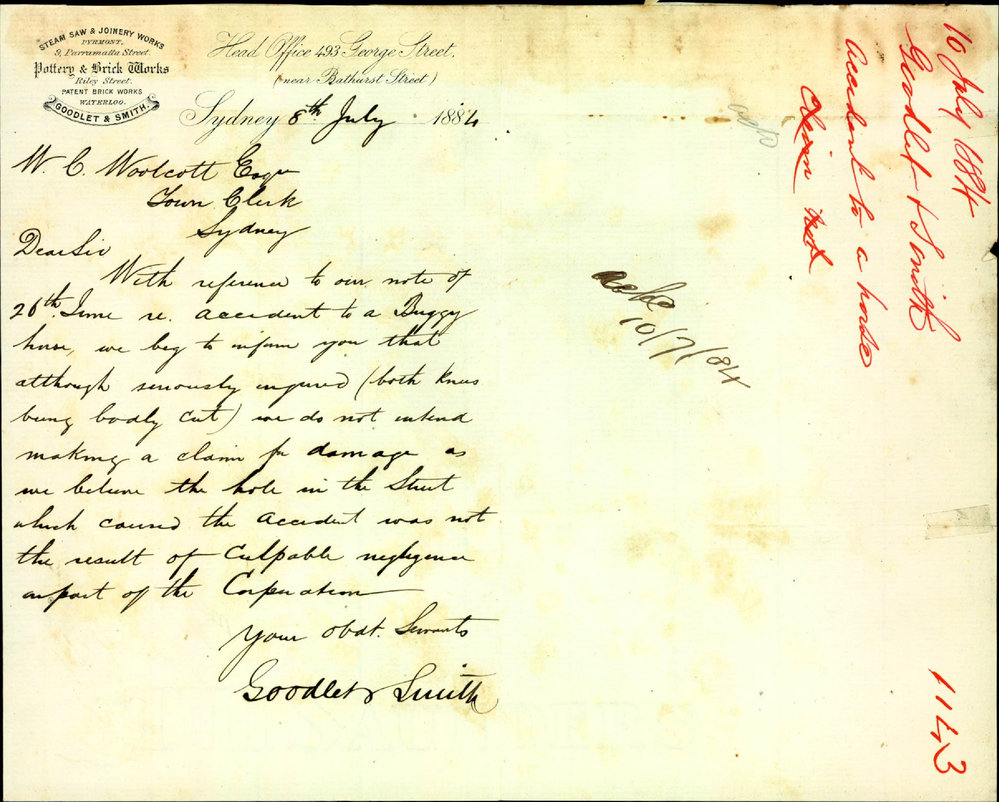 STEAM SAW & JOINERY WORKS
PYRMONT.
9, Parramatta Street.
Pottery & Brick Works
Riley Street.
PATENT BRICK WORKS
WATERLOO.
GOODLET & SMITH.
Head Office 493 George Street.
(near Bathurst Street)
Sydney 8th July 1884
W. C. Woolcott Esqre
Town Clerk
Sydney
Dear Sir
With reference to our note of
26th June re. accident to a Buggy
horse, we beg to inform you that
although seriously injured (both knees
being badly cut) we do not intend
making a claim for damage as
we believe the hole in the Street
which caused the accident was not
the result of culpable negligence
on part of the Corporation
Your obdt. Servants
Goodlet & Smith
10/7/84
10 July 1884
Goodlet & Smith
accident to a horse
Claim not
1143